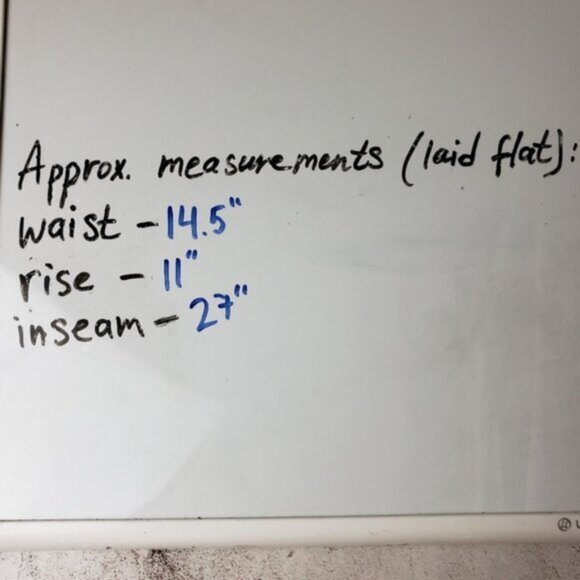 Approx. measurements (laid flat):
waist - 14.5"
rise - 11"
inseam - 27"